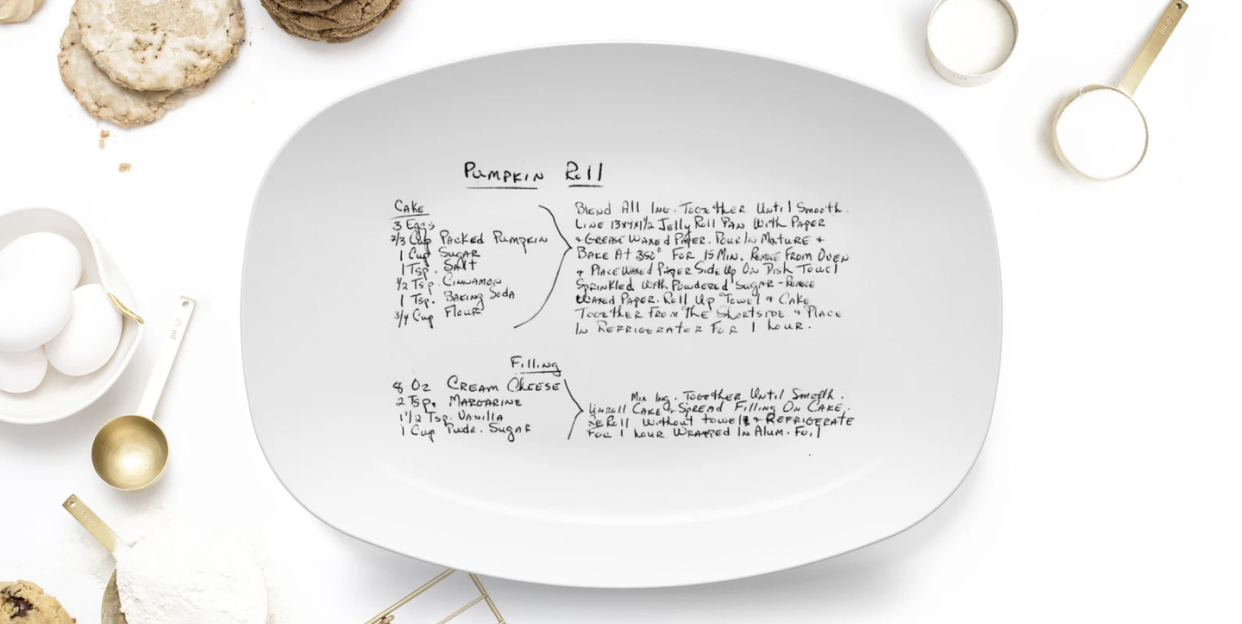 Pumpkin Roll
Cake
3 Eggs
2/3 Cup Packed Pumpkin
1 Cup Sugar
1 Tsp. Salt
1/2 Tsp. Cinnamon
1 Tsp. Baking Soda
3/4 Cup Flour
Blend All Ing. Together Until Smooth.
Line 13x9x1 1/2 Jelly Roll Pan With Paper
+ Grease Waxed Paper. Pour In Mixture +
Bake At 350° For 15 Min. Remove From Oven
+ Place Waxed Paper Side Up On Dish Towel
Sprinkled With Powdered Sugar - Remove
Waxed Paper. Roll Up Towel + Cake
Together From The Shortside + Place
In Refrigerator For 1 hour.
Filling
8 Oz Cream Cheese
2 Tsp. Margarine
1 1/2 Tsp. Vanilla
1 Cup Pwdr. Sugar
Mix Ing. Together Until Smooth.
Unroll Cake + Spread Filling On Cake.
ReRoll Without towel + Refrigerate
For 1 hour Wrapped In Alum. Foil